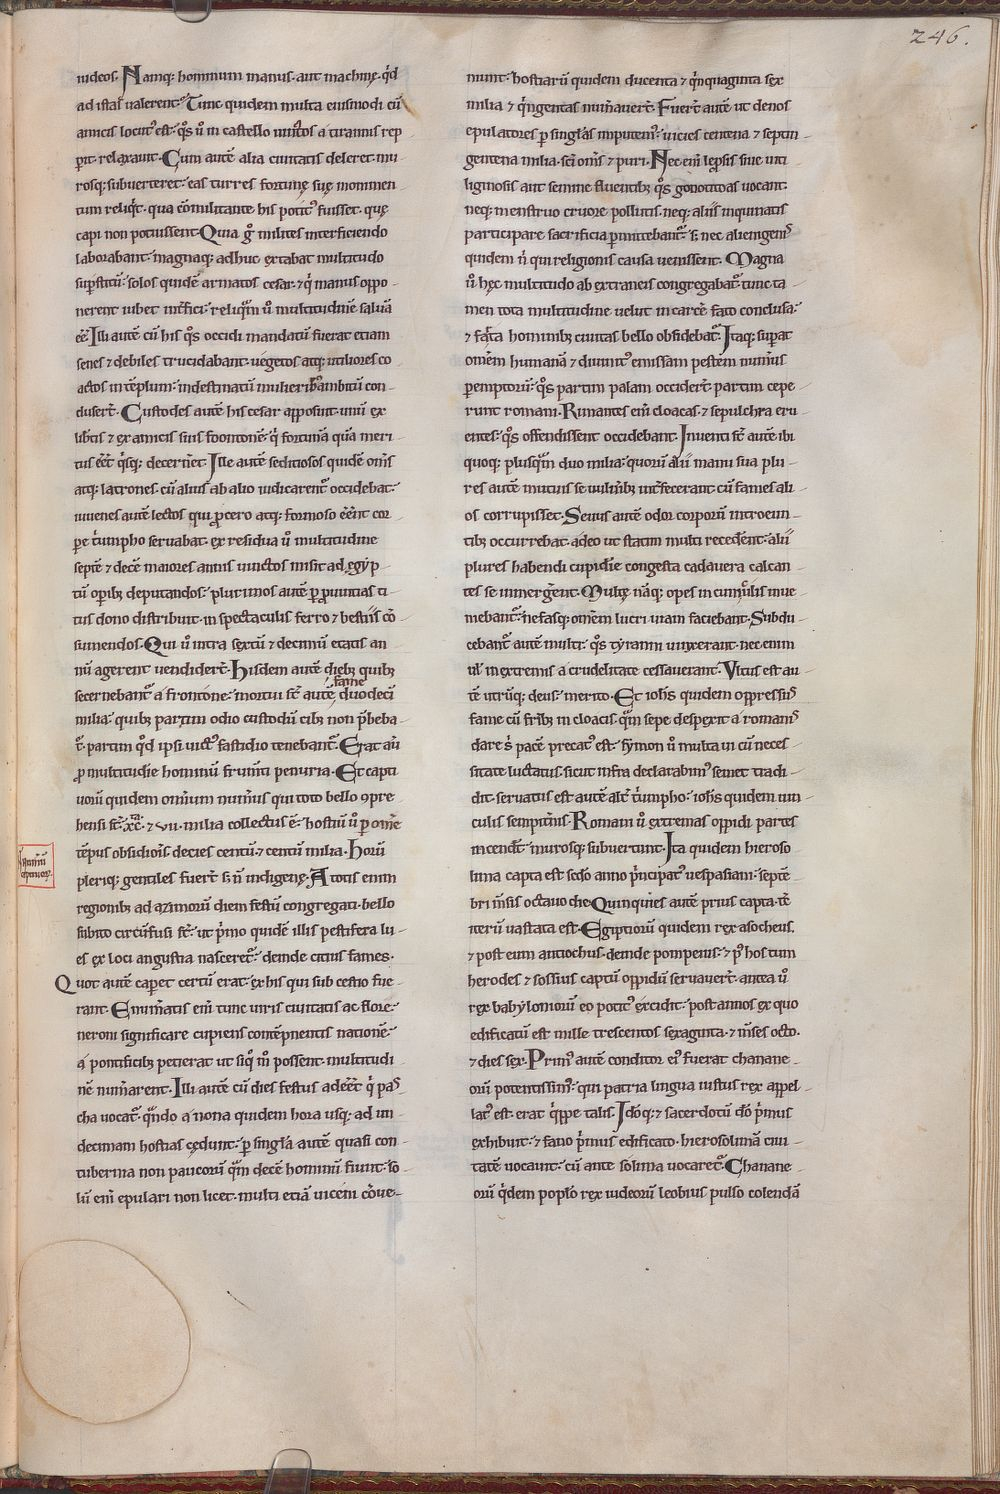 246.
iudeos. Namq; hominum manus. aut machinę. qͥd
ad istas ualerent? Tunc quidem multa eiusmodi cū
amicis locutꝰ est. qͦs ū in castello uinctos a tirannis rep
perit relaxauit. Cum autē alia ciuitatis deleret. mu
rosq; subuerteret. eas turres fortunę suę monimen
tum reliqͥt. qua cōmilitante his potitꝰ fuisset. quę
capi non potuissent. Quia gͦ milites interficiendo
laborabant. magnaq; adhuc extabat multitudo
supstitū. solos quidē armatos cesar. & qͥ manus oppo
nerent iubet int̄fici. reliqͣm ū multitudinē saluā
eē. Illi autē cū his qͦs occidi mandatū fuerat etiam
senes & debiles trucidabant. uegetos atq; utiliores co
actos in tēplum. indestinatū mulieribꝰ ambitū con
duser̄t. Custodes autē his cesar apposuit. unū ex
lib̄tis & ex amicis suis frontonē. qͥ fortunā quā meri
tus eēt qͥsq; decern̄et. Ille autē seditiosos quidē om̄s
atq; latrones. cū alius ab alio iudicarent̄ occidebat.
iuuenes autē lectos qui ꝓcero atq; formoso eēnt cor
pe tͥumpho seruabat. ex residua ū multitudine
septē & decē maiores annis uinctos misit ad ęgyp
tū opibꝫ deputandos. plurimos autē ꝑ ꝓuintias ti
tus dono distribuit. in spectaculis ferro & bestiis cō
sumendos. Qui ū intra sextū & decimū etatis an
nū agerent uendider̄t. Hisdem autē diebꝫ quibꝫ
secernebant̄ a frontone. mortui st̄ autē fame duodeci
milia. quibꝫ partim odio custodū cibꝫ non p̄beba
t̄. partim qͦd ipsi uictꝰ fastidio tenebant̄. Erat aū
ꝓ multitudīe hominū frum̄ti penuria. Et capti
uorū quidem omnium numerꝰ qui toto bello ꝯpre
hensi st̄. xc. & vii. milia collectus ē. hostiū ū ꝑ omē
tēpus obsidiois decies centū. & centū milia. Horū
pleriq; gentiles fuer̄t s; n̄ indigenę. A totis enim
regionibꝫ ad azimorū diem festū congregati. bello
subito circūfusi st̄. ut pͥmo quidē illis pestifera lu
es ex loci angustia nasceret̄. deinde citius fames.
Quot autē caperet certū erat. ex his qui sub cestio fue
rant. Enim̄atis em̄ tunc uiris ciuitatis ac flore
neroni significare cupiens contēpnentis nationē.
a pontificibꝫ petierat ut siqͦ m̊ possent. multitudi
nē num̄arent. Illi autē cū dies festus adeēt qͥ pas
cha uocat̄. qͣndo a nona quidem hora usq; ad un
decimam hostias cędunt. ꝑ singl̄a autē quasi con
tubernia non paucorū qͣm decē hominū fiunt. so
lū em̄ epulari non licet. multi etiā uiceni cōue
niunt. hostiarū quidem ducenta & qͥnquaginta sex
milia & qͥngentas num̄auer̄t. Fuer̄t autē ut denos
epulatores ꝑ singl̄as imputemꝰ. uicies centena & septin
gentena milia. sc̄i om̄s & puri. Nec em̄ leprosis siue uiti
liginosis aut semine fluentibꝫ qͦs gonotitoas uocant.
neq; menstruo cruore pollutis. neq; aliis inquinatis
participare sacrificia ꝑmittebant̄. s; nec alienigenis
quidem n̄ qui religionis causa uenissent. Magna
ū hęc multitudo ab extraneis congregabat̄. tunc ta
men tota multitudine uelut in carcē fato conclusa.
& farta hominibꝫ ciuitas bello obsidebat̄. Itaq; supat
omēm humanā & diuinitꝰ emissam pestem numerꝰ
ꝑemptorū. qͦs partim palam occider̄t. partim cepe
runt romani. Rimantes em̄ cloacas. & sepulchra eru
entes. qͦs offendissent occidebant. Inuenti st̄ autē ibi
quoq; plusqͣm duo milia. quorū alii manu sua plu
res autē mutuis se uuln̄ibꝫ int̄fecerant. cū fames ali
os corrupisset. Seuus autē odor corporū introeun
tibꝫ occurrebat. adeo ut statim multi recedent. alii
plures habendi cupidīe congesta cadauera calcan
tes se inmergent. Multę nāq; opes in cuniculis inue
nebant̄. nefasq; omēm lucri uiam faciebant. Subdu
cebant̄ autē multi. qͦs tyranni uinxerant. nec enim
ul̄ in extremis a crudelitate cessauerant. Vltus est au
tē utrūq; deus. merito. Et ioh̄s quidem oppressus
fame cū frībꝫ in cloacis. qͣm sepe despexit a romanis
dare s̄ pacē precatꝰ est. Symon ū multa ui cū neces
sitate luctatus. sicut infra declarabimꝰ semet tradi
dit. seruatus est autē alt̄ tͥumpho. ioh̄s quidem uin
culis sempit̄nis. Romani ū extremas oppidi partes
incender̄t. murosq; subuertunt. Ita quidem hieroso
lima capta est secdo anno pͥncipatꝰ uespasiani. septē
bri m̄sis octauo die. Quinquies autē prius capta. tē
iterū uastata est. Egiptiorū quidem rex asocheus.
& post eum antiochus. deinde pompeius. & pꝰ hos cum
herodes & sossius captū oppidū seruauer̄t. antea ū
rex babyloniorū eo potitꝰ excidit. post annos ex quo
edificatū est mille trescentos sexaginta. & m̄ses octo.
& dies sex. Primꝰ autē conditor eiꝰ fuerat chanane
orū potentissimꝰ. qui patria lingua iustus rex appel
latꝰ est. erat qͥppe talis. Idoq; & sacerdotiū dō pͥmus
exhibuit. & fano pͥmus edificato. hierosolimā ciui
tatē uocauit. cū ante solima uocaret̄. Chanane
orū qͥdem poplō rex iudeorū leobius pulso colendā